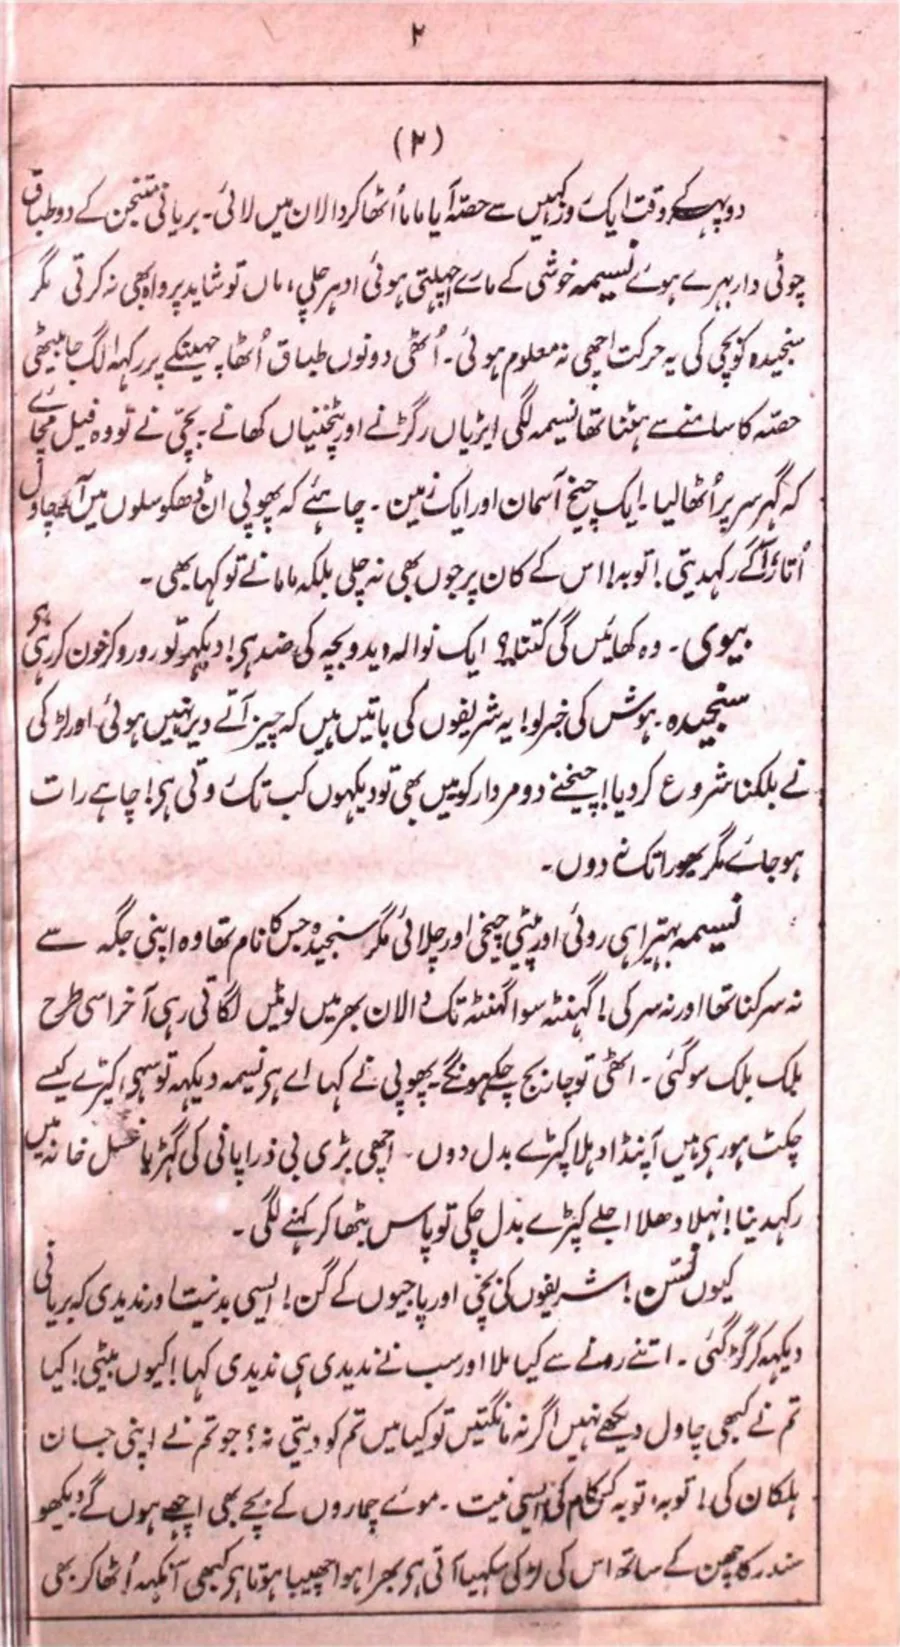 ۲
(۲)
دوپہر کے وقت ایک روز کہیں سے حصّہ آیا ماما اُٹھا کر دالان میں لائی۔ بریانی متنجن کے دو طباق
چوٹی دار بہرے ہوئے نسیمہ خوشی کے مارے اچہلتی ہوئی ادہر چلی، ماں تو شاید پرواہ بھی نہ کرتی مگر
سنجیدہ کو بچی کی یہ حرکت اچھی نہ معلوم ہوئی۔ اُٹھی دونوں طباق اُٹھا چہینکے پر رکہہ الگ جا بیٹھی
حصّہ کا سامنے سے ہٹنا تھا نسیمہ لگی ایڑیاں رگڑنے اور پٹخنیاں کھانے۔ بچی نے تو وہ فیل مچائے
کہ گہر سر پر اُٹھا لیا۔ ایک چیخ آسمان اور ایک زمین۔ چاہئے کہ پھوپی ان ڈھکوسلوں میں آ کے چاول
اُتار آگے رکہدیتی! توبہ! اس کے کان پر جوں بھی نہ چلی بلکہ ماما نے تو کہا بھی۔
بیوی۔ وہ کھائیں گی کتنا؟ ایک نوالہ دیدو بچہ کی ضد ہی! دیکہو تو رو رو کر خون کر رہی ہی
سنجیدہ۔ ہوش کی خبر لو! یہ شریفوں کی باتیں ہیں کہ چیز آتے دیر نہیں ہوئی اور لڑکی
نے بلکنا شروع کر دیا! چیخنے دو مردار کو میں بھی تو دیکہوں کب تک روتی ہی! چاہے رات
ہو جائے مگر بھورا تک نہ دوں۔
نسیمہ بہتیرا ہی روئی اور پیٹی چیخی اور چلائی مگر سنجیدہ جس کا نام تھا وہ اپنی جگہ سے
نہ سرکنا تھا اور نہ سرکی! گہنٹہ سوا گہنٹہ تک دالان بھر میں لوٹیں لگاتی رہی آخر اسی طرح
بلک بلک سو گئی۔ اٹھی تو چار بج چکے ہونگے۔ پھوپی نے کہا اے ہی نسیمہ دیکہہ تو سہی کپڑے کیسے
چکٹ ہو رہی ہیں آ پنڈا دہلا کپڑے بدل دوں۔ اچھی بڑی بی ذرا پانی کی گہڑیا غسل خانہ میں
رکہدینا! نہلا دھلا اجلے کپڑے بدل چکی تو پاس بٹھا کر کہنے لگی۔
کیوں نسّن! شریفوں کی بچی اور پاجیوں کے گن! ایسی بدنیت اور ندیدی کہ بریانی
دیکہہ کر گڑ گئی۔ اتنے رونے سے کیا ملا اور سب نے ندیدی ہی ندیدی کہا! کیوں بیٹی! کیا
تم نے کبھی چاول دیکھے نہیں اگر نہ مانگتیں تو کیا میں تم کو دیتی نہ؟ جو تم نے اپنی جان
ہلکان کی! توبہ، توبہ کس کام کی ایسی نیت۔ موئے چماروں کے بچے بھی اچھے ہوں گے دیکھو
سندر کاچھن کے ساتھ اس کی لڑکی سکہیا آتی ہی بھرا ہوا چھیبا ہوتا ہی کبھی آنکہہ اُٹھا کر بھی